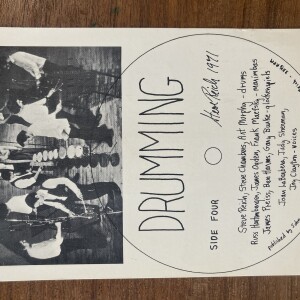 DRUMMING
Steve Reich 1971
SIDE FOUR
Steve Reich, Steve Chambers, Art Murphy - drums
Russ Hartenberger, James Ogden, Frank Maefsky - marimbas
James Preiss, Ben Harms, Gary Burke - glockenspiels
Joan LaBarbara, Judy Sherman,
Jay Clayton - voices
published by